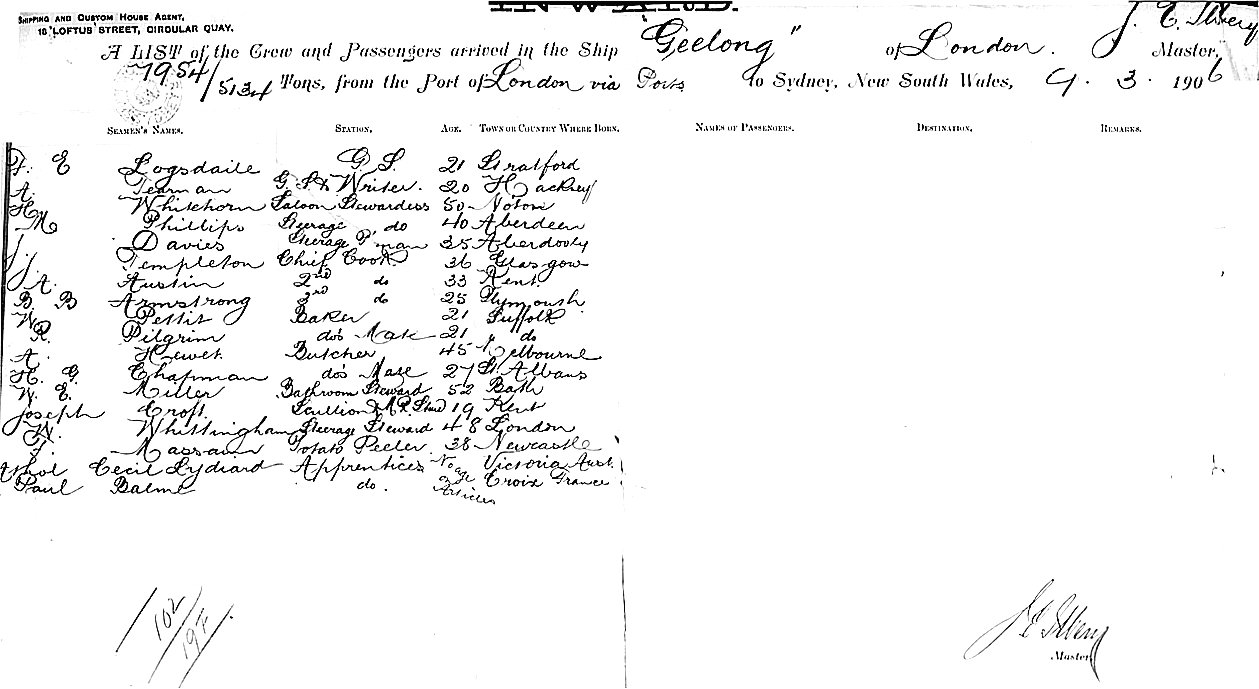 INWARD.
SHIPPING AND CUSTOM HOUSE AGENT,
18 LOFTUS STREET, CIRCULAR QUAY.
A LIST of the Crew and Passengers arrived in the Ship "Geelong" of London. J. E. Ilbery Master,
7954/5134 Tons, from the Port of London via Ports to Sydney, New South Wales, 9. 3. 1906
SEAMEN'S NAMES. STATION. AGE. TOWN OR COUNTRY WHERE BORN. NAMES OF PASSENGERS. DESTINATION. REMARKS.
F. E Logsdaile G. S. 21 Stratford
A. Tearman G. S. & Writer. 20 Hackney
H. Whitehorn Saloon Stewardess 50
M Phillips Steerage do 40 Aberdeen
J. Davies Steerage P'man 35 Aberdovey
J. Templeton Chief Cook 36 Glasgow
J. A. Austin 2nd do 33 Kent.
B. B Armstrong 3rd do 25 Plymouth
W. Pettit Baker 21 Suffolk
R. Pilgrim do's Mate 21 do
A. Hewet Butcher 45 Melbourne
H. G. Chapman do's Mate 27 St. Albans
W. E. Miller Bathroom Steward 52 Bath
Joseph Croft Scullion 19 Kent
W. Whittingham Steerage Steward 48 London
F. Massam Potato Peeler 38 Newcastle
Athol Cecil Lydiard Apprentices No age Victoria Aust.
Paul Balme do. on Articles Croix France
102
197
J. E. Ilbery
Master.